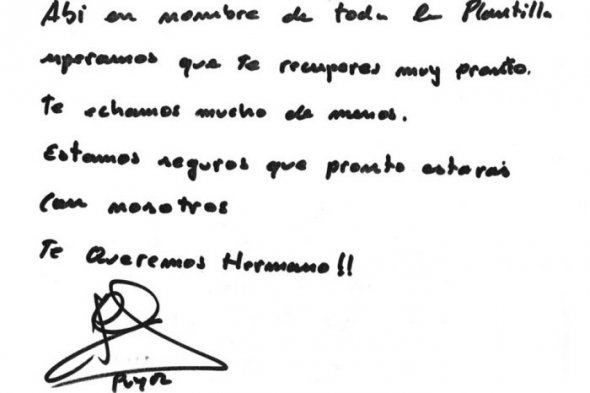 Abi en nombre de toda la Plantilla
esperamos que te recuperes muy pronto.
Te echamos mucho de menos.
Estamos seguros que pronto estarás
con nosotros
Te Queremos Hermano!!
Puyol